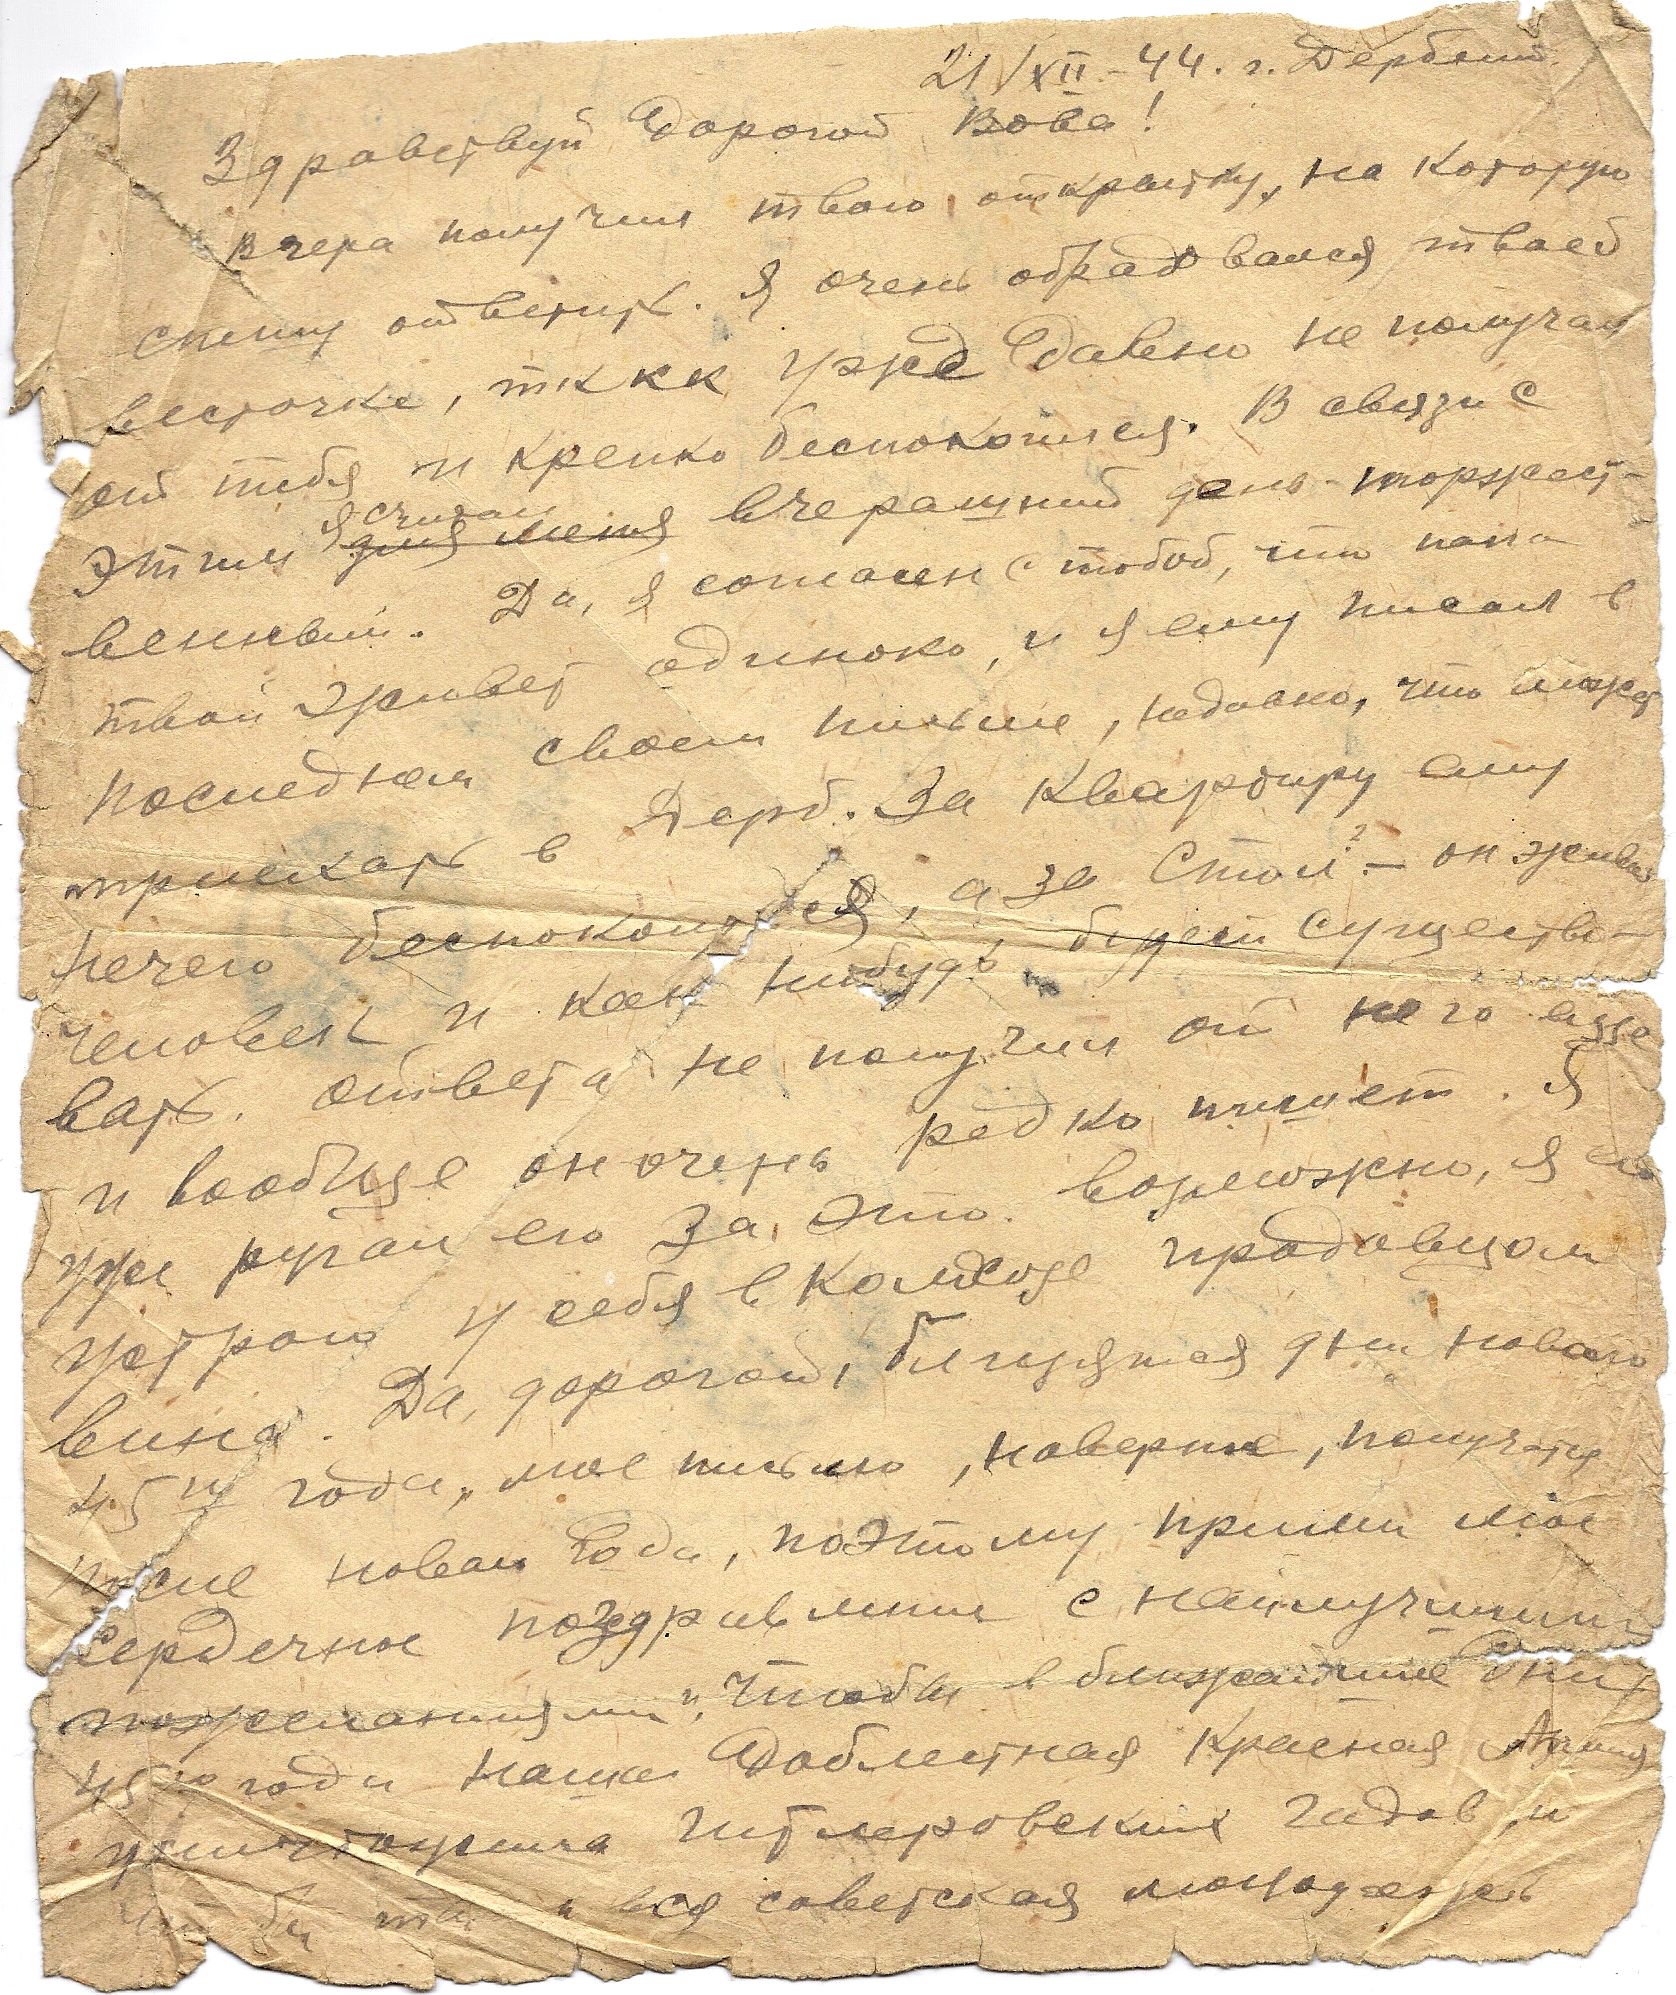 21/XII-44. г. Дербент.
Здравствуй дорогой Вова!
Вчера получил твою открытку, на которую
спешу ответить. Я очень обрадовался твоей
весточке, т.к. уже давно не получал
от тебя и крепко беспокоился. В связи с
этим я считаю для меня вчерашний день - торжест-
венным. Да, я согласен с тобой, что папа
твой живет одиноко, и я ему писал в
последнем своем письме, недавно, что может
приехать в Дерб. За квартиру ему
нечего беспокоиться, а за стол? - он живой
человек и как нибудь будет существо-
вать. Ответа не получил от него еще
и вообще он очень редко пишет. Я
уже ругал его за это. Возможно, я его
устрою у себя в колхозе продавцом
вина. Да, дорогой, близятся дни нового
45го года, мое письмо, наверное, получится
после нового года, поэтому прими мое
сердечное поздравление с наилучшими
пожеланиями, чтобы в ближайшие дни
45го года наша доблестная Красная Армия
уничтожила гитлеровских гадов, и
чтобы ты и вся советская молодежь